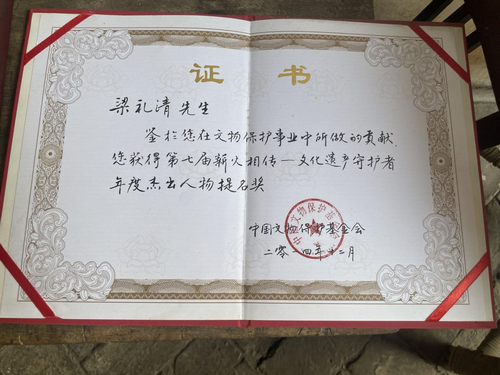 证书
梁礼清先生
鉴于您在文物保护事业中所做的贡献,
您获得第七届薪火相传—文化遗产守护者
年度杰出人物提名奖
中国文物保护基金会
二零一四年十二月
中国文物保护基金会